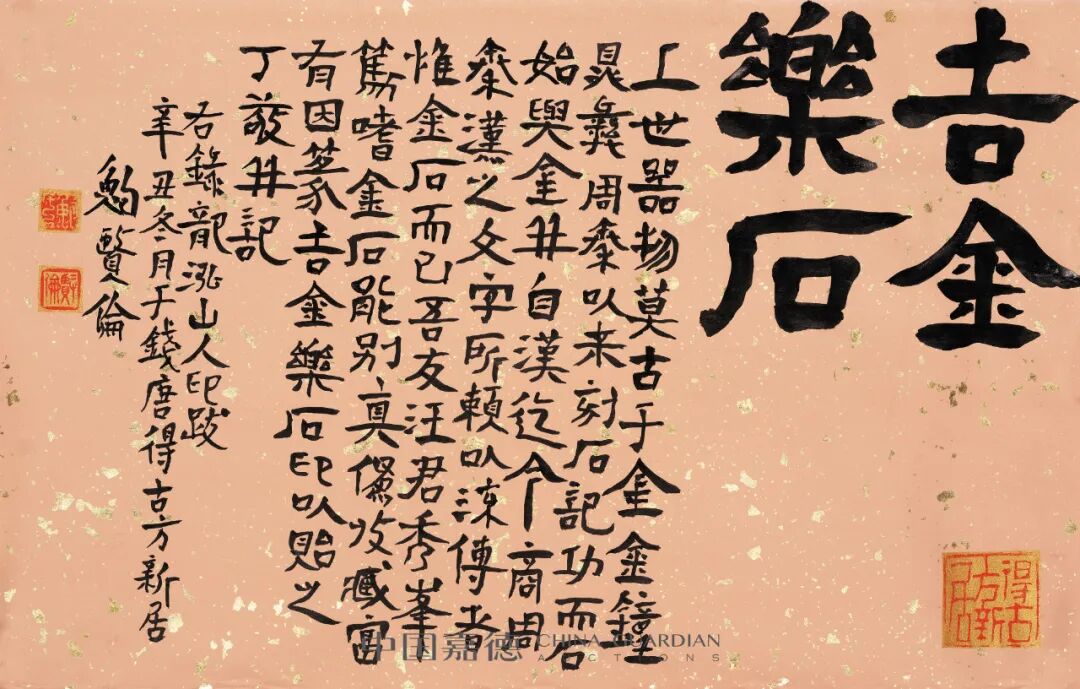 吉金
樂石
上世器物莫古于金金鐘
鼎彝周秦以来刻石記功而石
始與金并自漢迄今商周
秦漢之文字所賴以流傳者
惟金石而已吾友汪君秀峯
篤嗜金石能别真僞收藏富
有因篆吉金樂石印以貽之
丁敬并記
右錄龍泓山人印跋
辛丑冬月于錢唐得古方新居
鮑賢倫
賢倫
得古方新居
中国嘉德 CHINA GUARDIAN
AUCTIONS